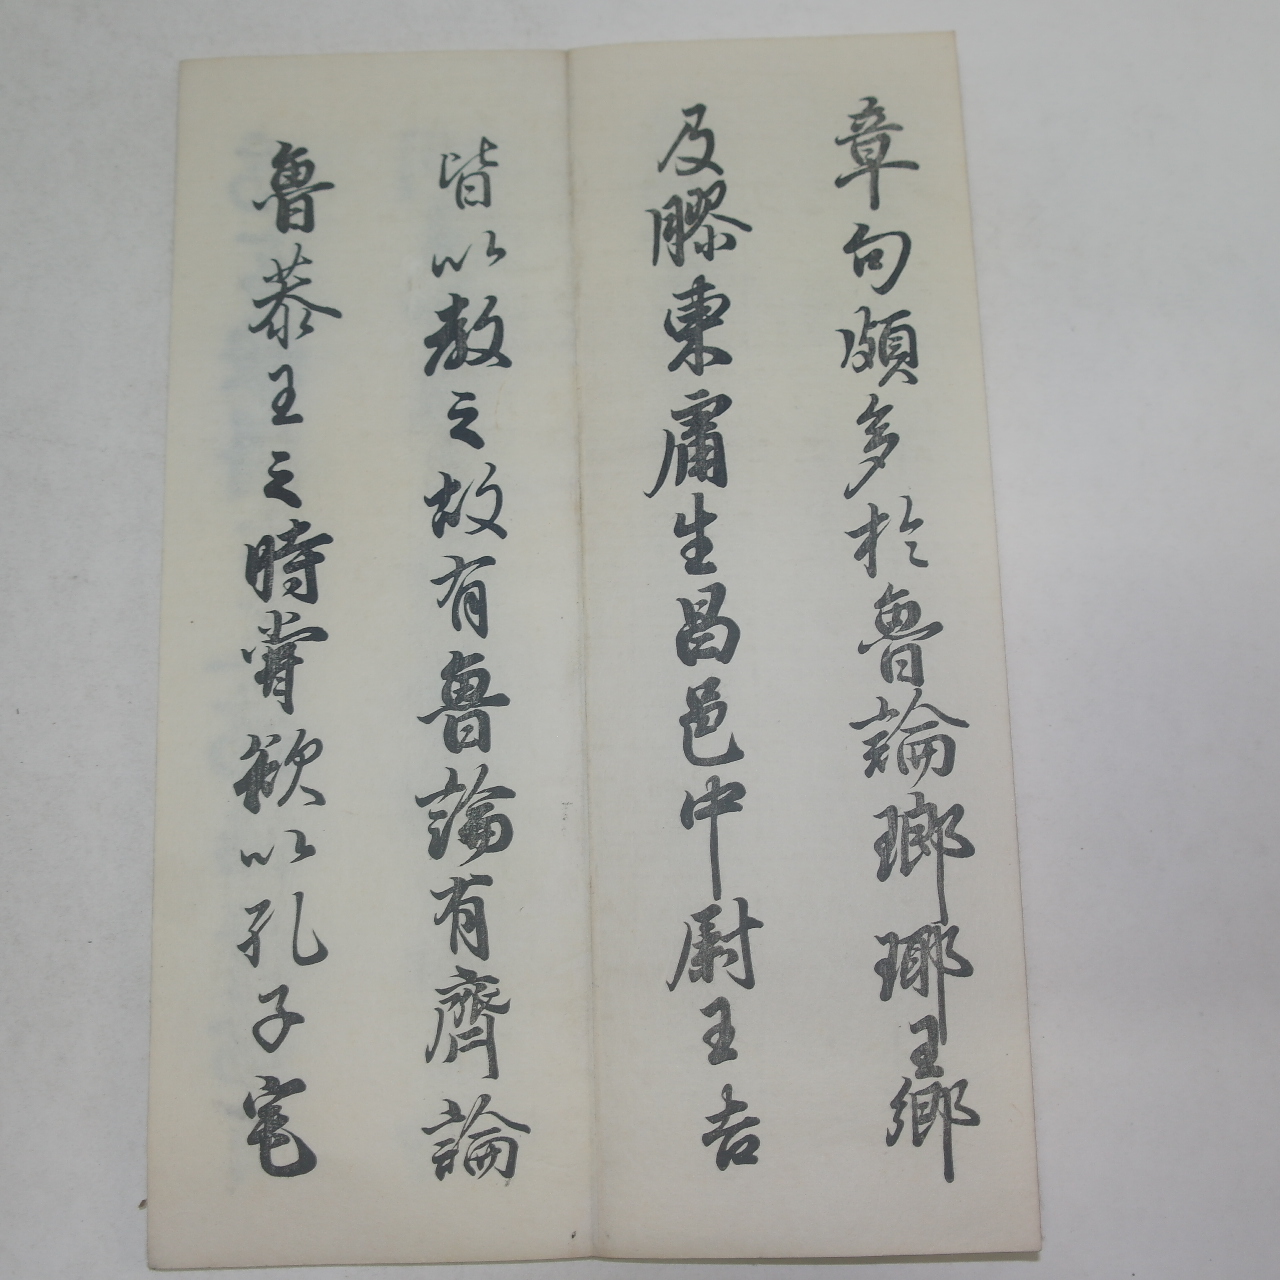 章句頗多於魯論瑯琊王鄉
及膠東庸生昌邑中尉王吉
皆以教之故有魯論有齊論
魯恭王之時嘗欲以孔子宅